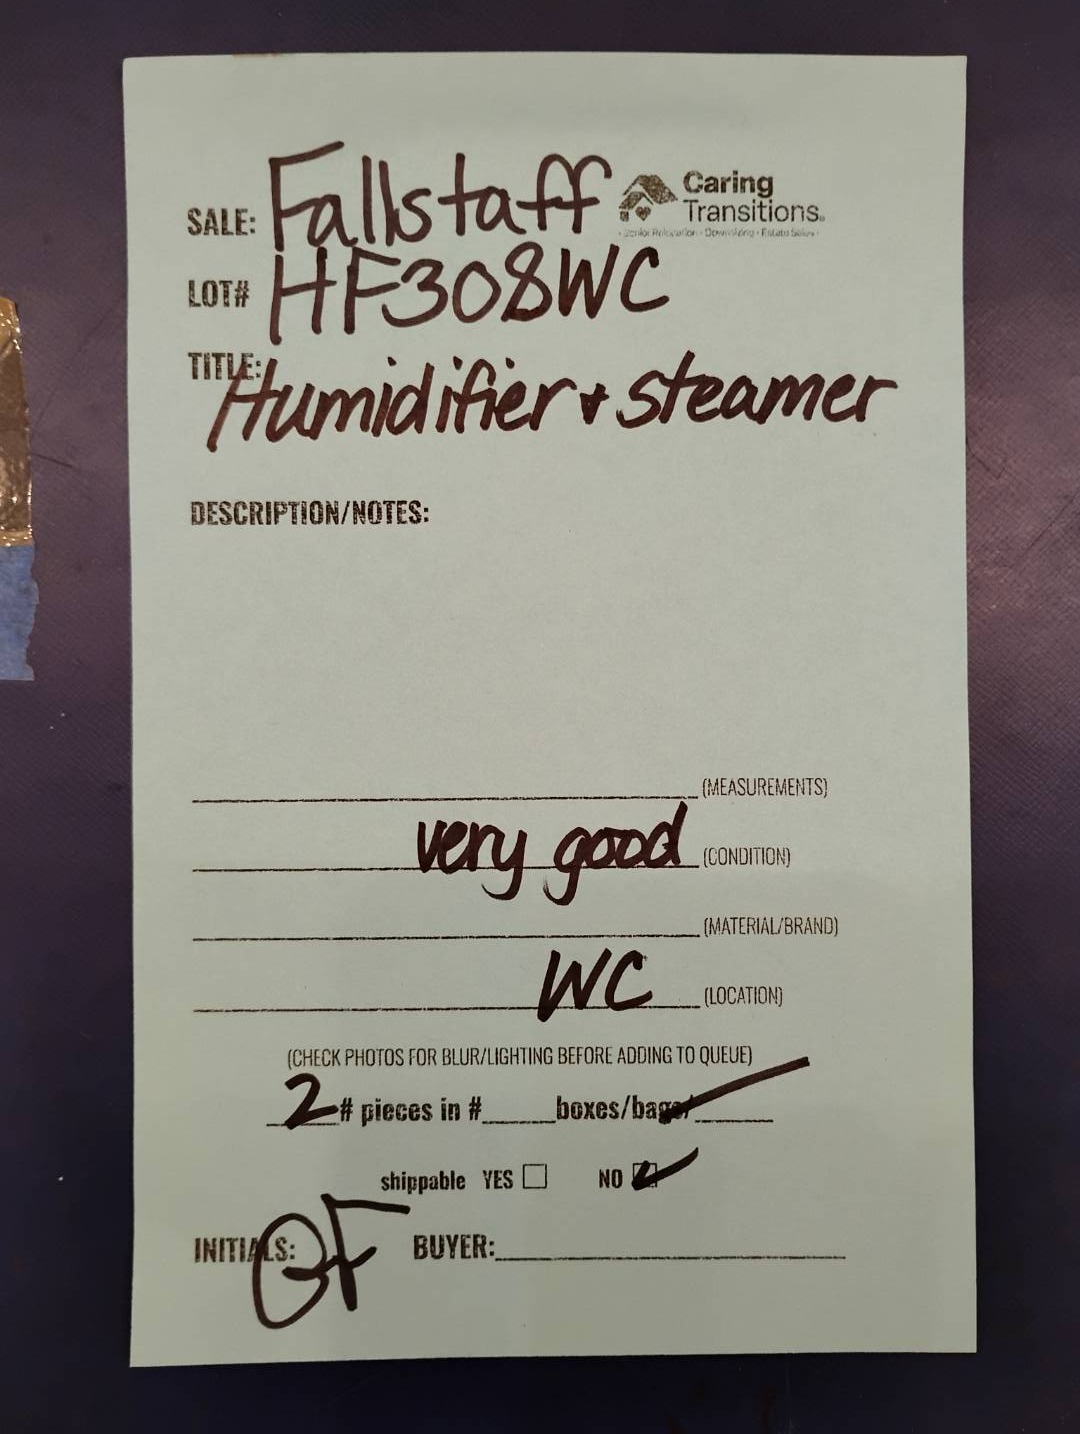 SALE: Fallstaff
Caring
Transitions
Senior Relocation · Downsizing · Estate Sales
LOT# HF308WC
TITLE: Humidifier + steamer
DESCRIPTION/NOTES:
(MEASUREMENTS)
very good (CONDITION)
(MATERIAL/BRAND)
WC (LOCATION)
(CHECK PHOTOS FOR BLUR/LIGHTING BEFORE ADDING TO QUEUE)
2 # pieces in #____boxes/bags/____
shippable YES ☐ NO ☑
INITIALS: GF BUYER:____